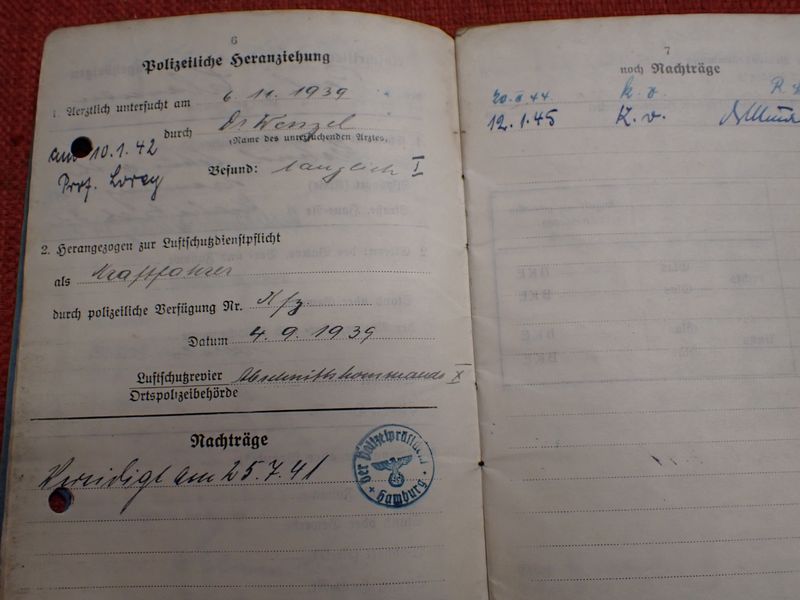 6
Polizeiliche Heranziehung
1. Aerztlich untersucht am 6. 11. 1939
durch Dr Wenzel
(Name des untersuchenden Arztes.)
am 10.1.42
Prof. Lorey
Befund: tauglich I
2. Herangezogen zur Luftschutzdienstpflicht
als Kraftfahrer
durch polizeiliche Verfügung Nr. Kfz.
Datum 4. 9. 1939
Luftschutzrevier Abschnittskommando X
Ortspolizeibehörde
Nachträge
Vereidigt am 25.7.41
Der Polizeipräsident
Hamburg
7
noch Nachträge
k. v.
12.1.45 K. v.